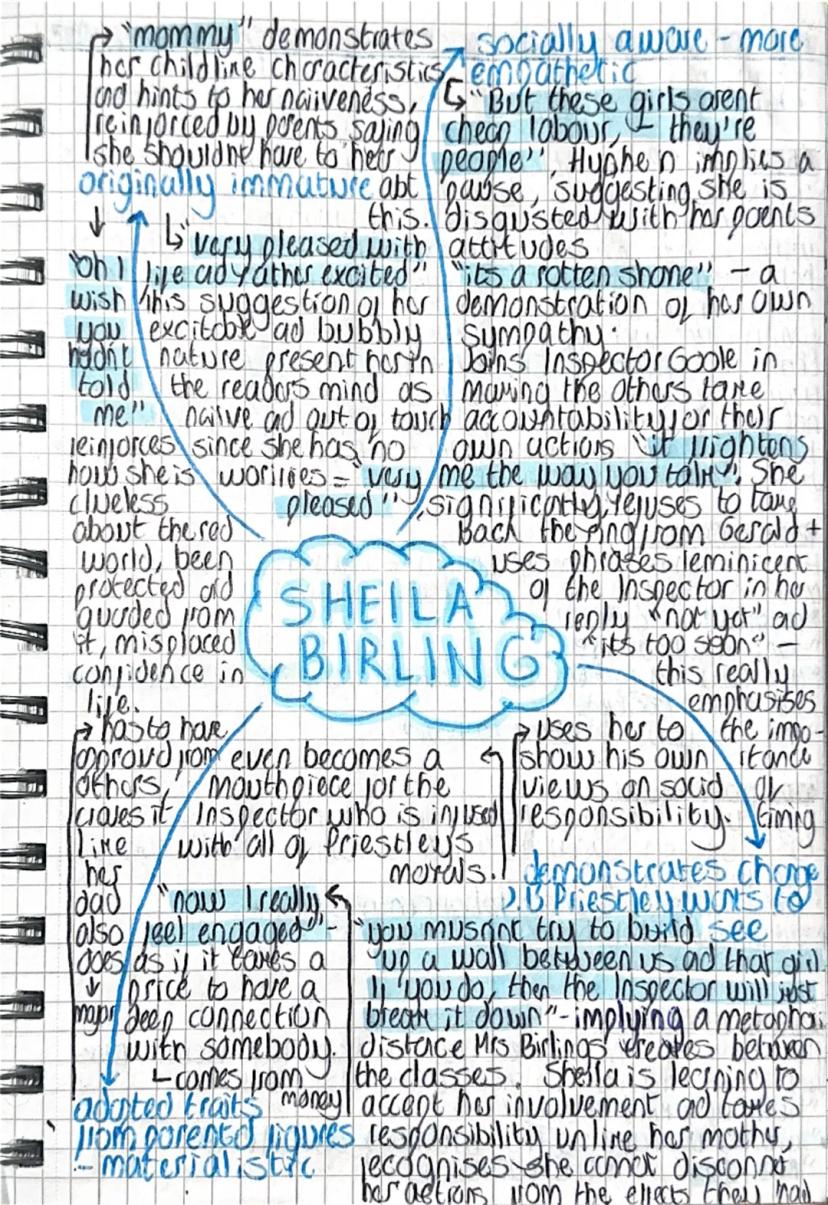 "mommy" demonstrates
her childlike characteristics
and hints to her naiiveness,
reinforced by parents saying
she shouldnt have to hear
originally immature abt
this.
"very pleased with
life ad rather excited"
this suggestion of her
excitable ad bubbly
nature present her in
the readers mind as
naiive ad out of touch
since she has no
worries = "very
pleased"
"oh I
wish
you
hadn't
told
me"
reinforces
how she is
clueless
about the real
world, been
protected ad
guarded from
it, misplaced
confidence in
life.
socially aware - more
empathetic
"But these girls arent
cheap labour, - they're
people", Hyphen implies a
pause, suggesting she is
disgusted with her parents
attitudes
"its a rotten shame" - a
demonstration of her own
sympathy.
Joins Inspector Goole in
making the others take
accountability for their
own actions "it frightens
me the way you talk". She
significantly, refuses to take
back the ring from Gerald +
uses phrases reminicent
of the Inspector in her
reply "not yet" ad
"its too soon" -
this really
emphasises
the impo-
rtance
of
timing
SHEILA
BIRLING
demonstrates change
J.B Priestley wants to
see
uses her to
show his own
views on social
responsibility.
even becomes a
mouthpiece for the
Inspector who is infused
with all of Priestleys
morals.
"you musnt try to build
up a wall between us ad that girl.
If you do, then the Inspector will just
break it down" - implying a metaphoric
distace Mrs Birlings creates between
the classes. Sheila is learning to
accept her involvement ad takes
responsibility unlike her mother,
recognises she cannot disconnect
her actions from the effects they had
adopted traits
from parental figures
- materialistic
has to have
approval from
others,
craves it
like
her
dad
also
does
major
"now I really
feel engaged" -
as if it takes a
price to have a
deep connection
with somebody.
comes from
money